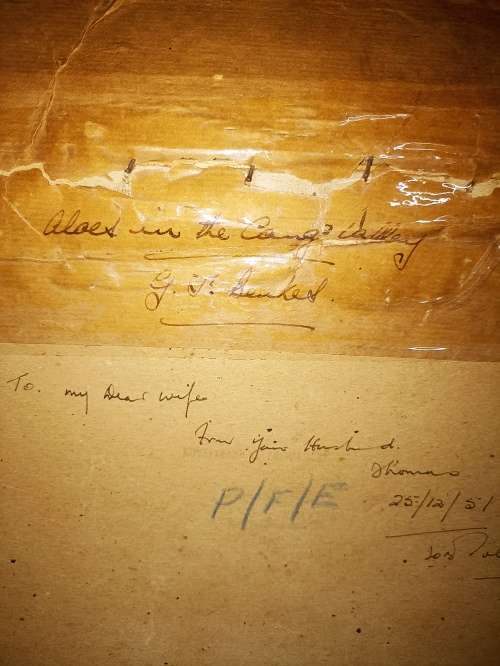 Aloes in the Cango Valley
G. T. Benkes.
To. my Dear wife
From your Husband.
Thomas
P/F/E
25/12/51